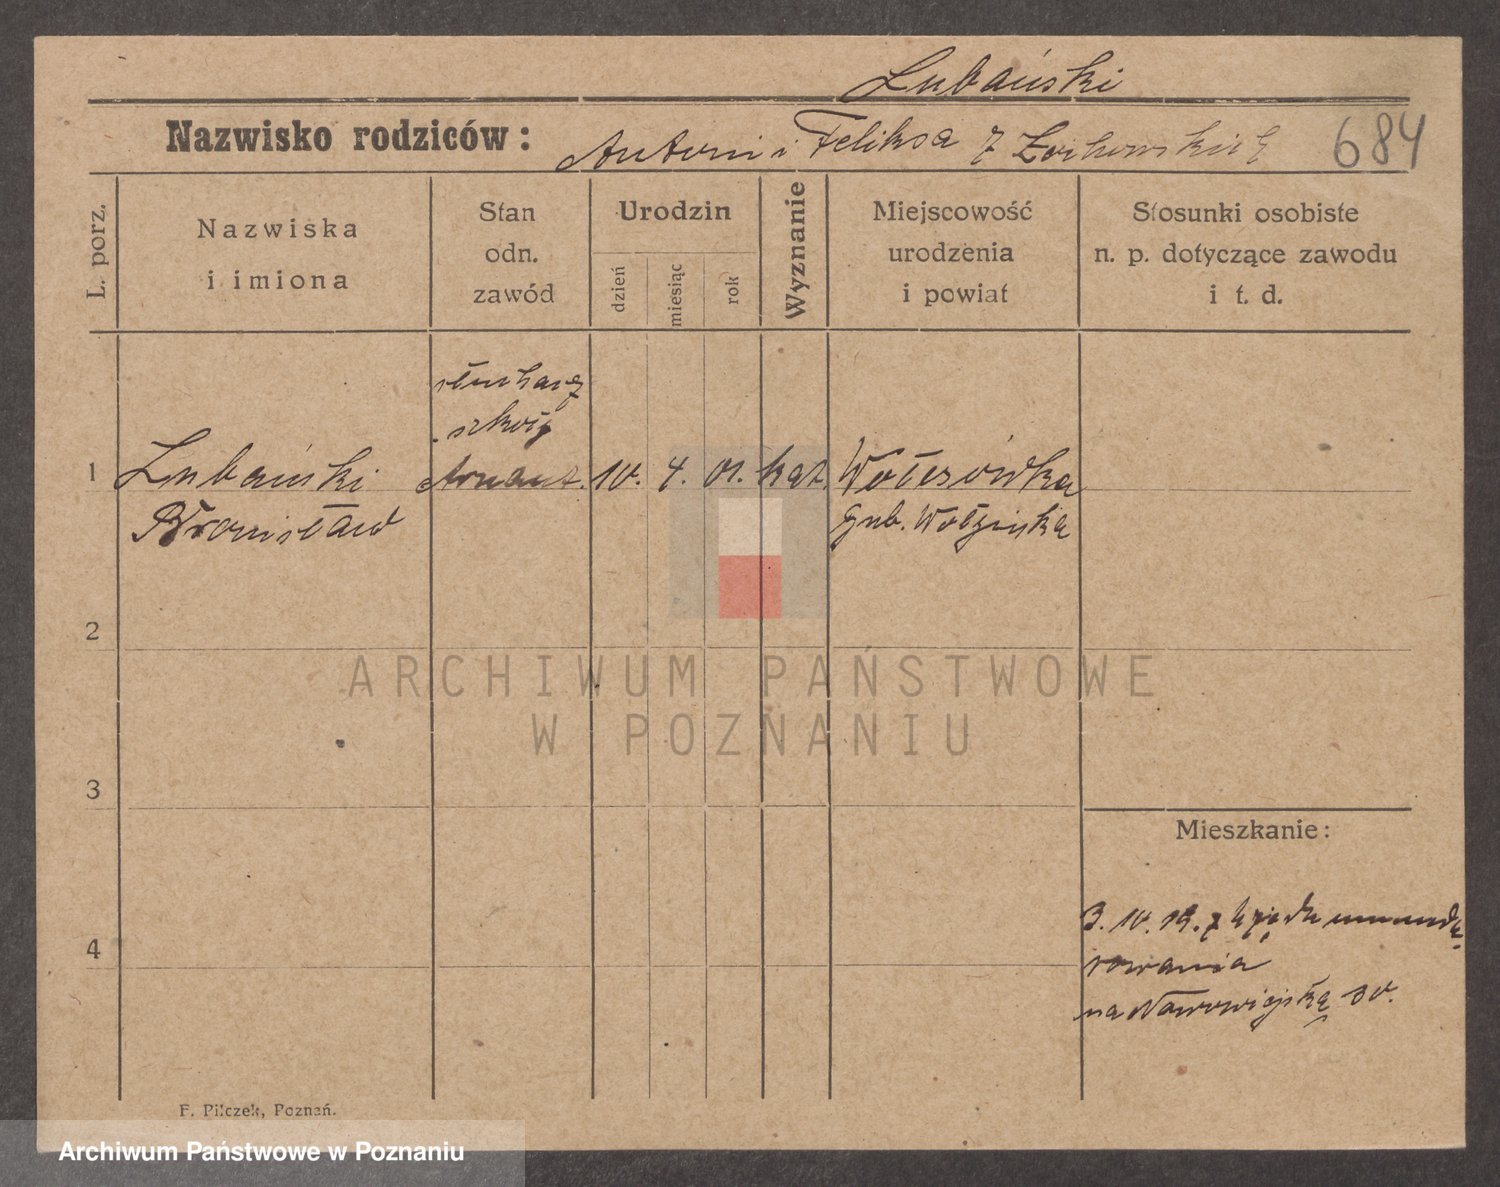 Lubański
Nazwisko rodziców: Antoni i Feliksa z 684
L. porz.
Nazwiska
i imiona
Stan
odn.
zawód
Urodzin
dzień
miesiąc
rok
Wyznanie
Miejscowość
urodzenia
i powiat
Stosunki osobiste
n. p. dotyczące zawodu
i t. d.
1 Lubański 10. 4. 01. kat. Wołczówka
Bronisław Gub. Wołyńska
2
ARCHIWUM PAŃSTWOWE
W POZNANIU
3
Mieszkanie:
3. 10. 19. z
rowania
na Nowowiejską 30.
4
F. Pilczek, Poznań.
Archiwum Państwowe w Poznaniu